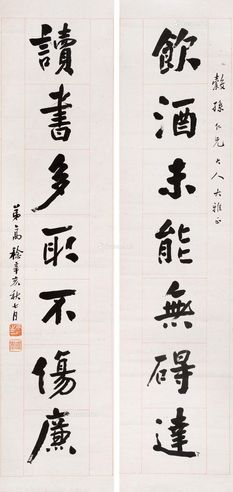 飲酒未能無碍達
讀書多取不傷廉
穀孫仁兄大人大雅正
弟高稔辛亥秋七月